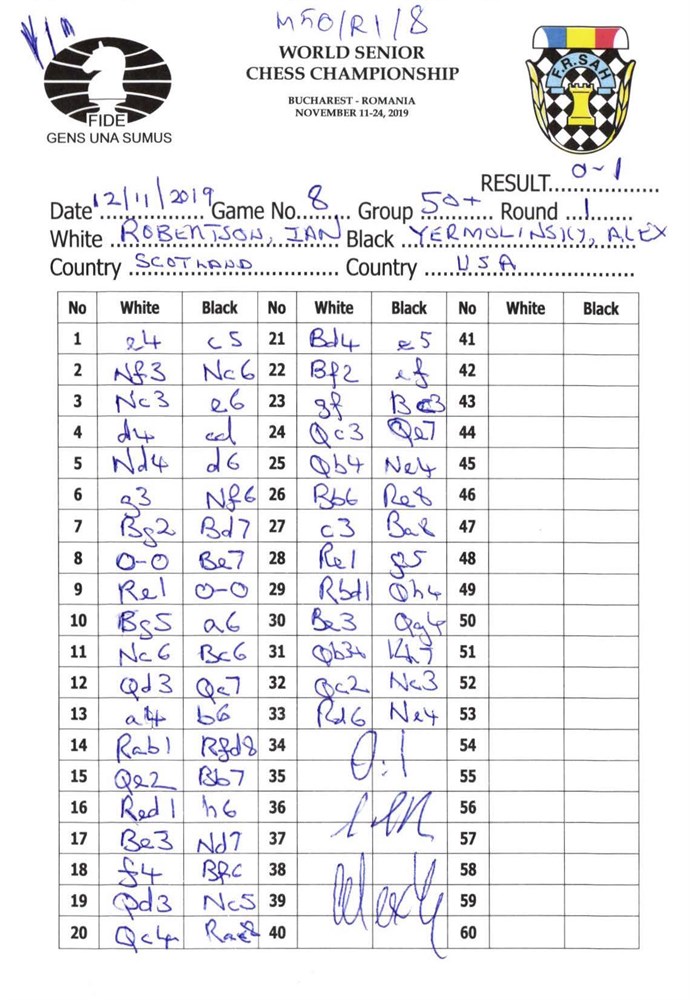 M50/R1/8
WORLD SENIOR
CHESS CHAMPIONSHIP
BUCHAREST - ROMANIA
NOVEMBER 11-24, 2019
FIDE
GENS UNA SUMUS
F.R.SAH
RESULT 0-1
Date 12/11/2019 Game No. 8 Group 50+ Round 1
White ROBERTSON, IAN Black YERMOLINSKY, ALEX
Country SCOTLAND Country USA
No White Black No White Black No White Black
1 e4 c5 21 Bd4 e5 41
2 Nf3 Nc6 22 Bf2 ef 42
3 Nc3 e6 23 gf Bc3 43
4 d4 cd 24 Qc3 Qe7 44
5 Nd4 d6 25 Qb4 Ne4 45
6 g3 Nf6 26 Bb6 Re8 46
7 Bg2 Bd7 27 c3 Ba8 47
8 0-0 Be7 28 Re1 g5 48
9 Re1 0-0 29 Rbd1 Qh4 49
10 Bg5 a6 30 Be3 Qg4 50
11 Nc6 Bc6 31 Qb3+ Kh7 51
12 Qd3 Qc7 32 Qc2 Nc3 52
13 a4 b6 33 Rd6 Ne4 53
14 Rab1 Rfd8 34 0:1 54
15 Qe2 Bb7 35 55
16 Red1 h6 36 56
17 Be3 Nd7 37 57
18 f4 Bf6 38 58
19 Qd3 Nc5 39 59
20 Qc4 Rac8 40 60